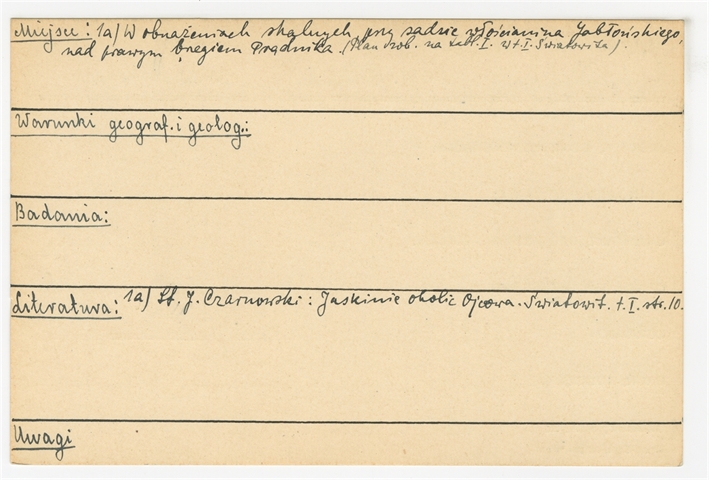 Miejsce: 1a) W obnażeniach skalnych, przy sadzie włościanina Jabłońskiego,
nad prawym brzegiem Prądnika. (Plan zob. na tabl. I. w t. I. Światowita).
Warunki geograf. i geolog.:
Badania:
Literatura: 1a) St. J. Czarnowski: Jaskinie okolic Ojcowa. Światowit. t. I. str. 10.
Uwagi